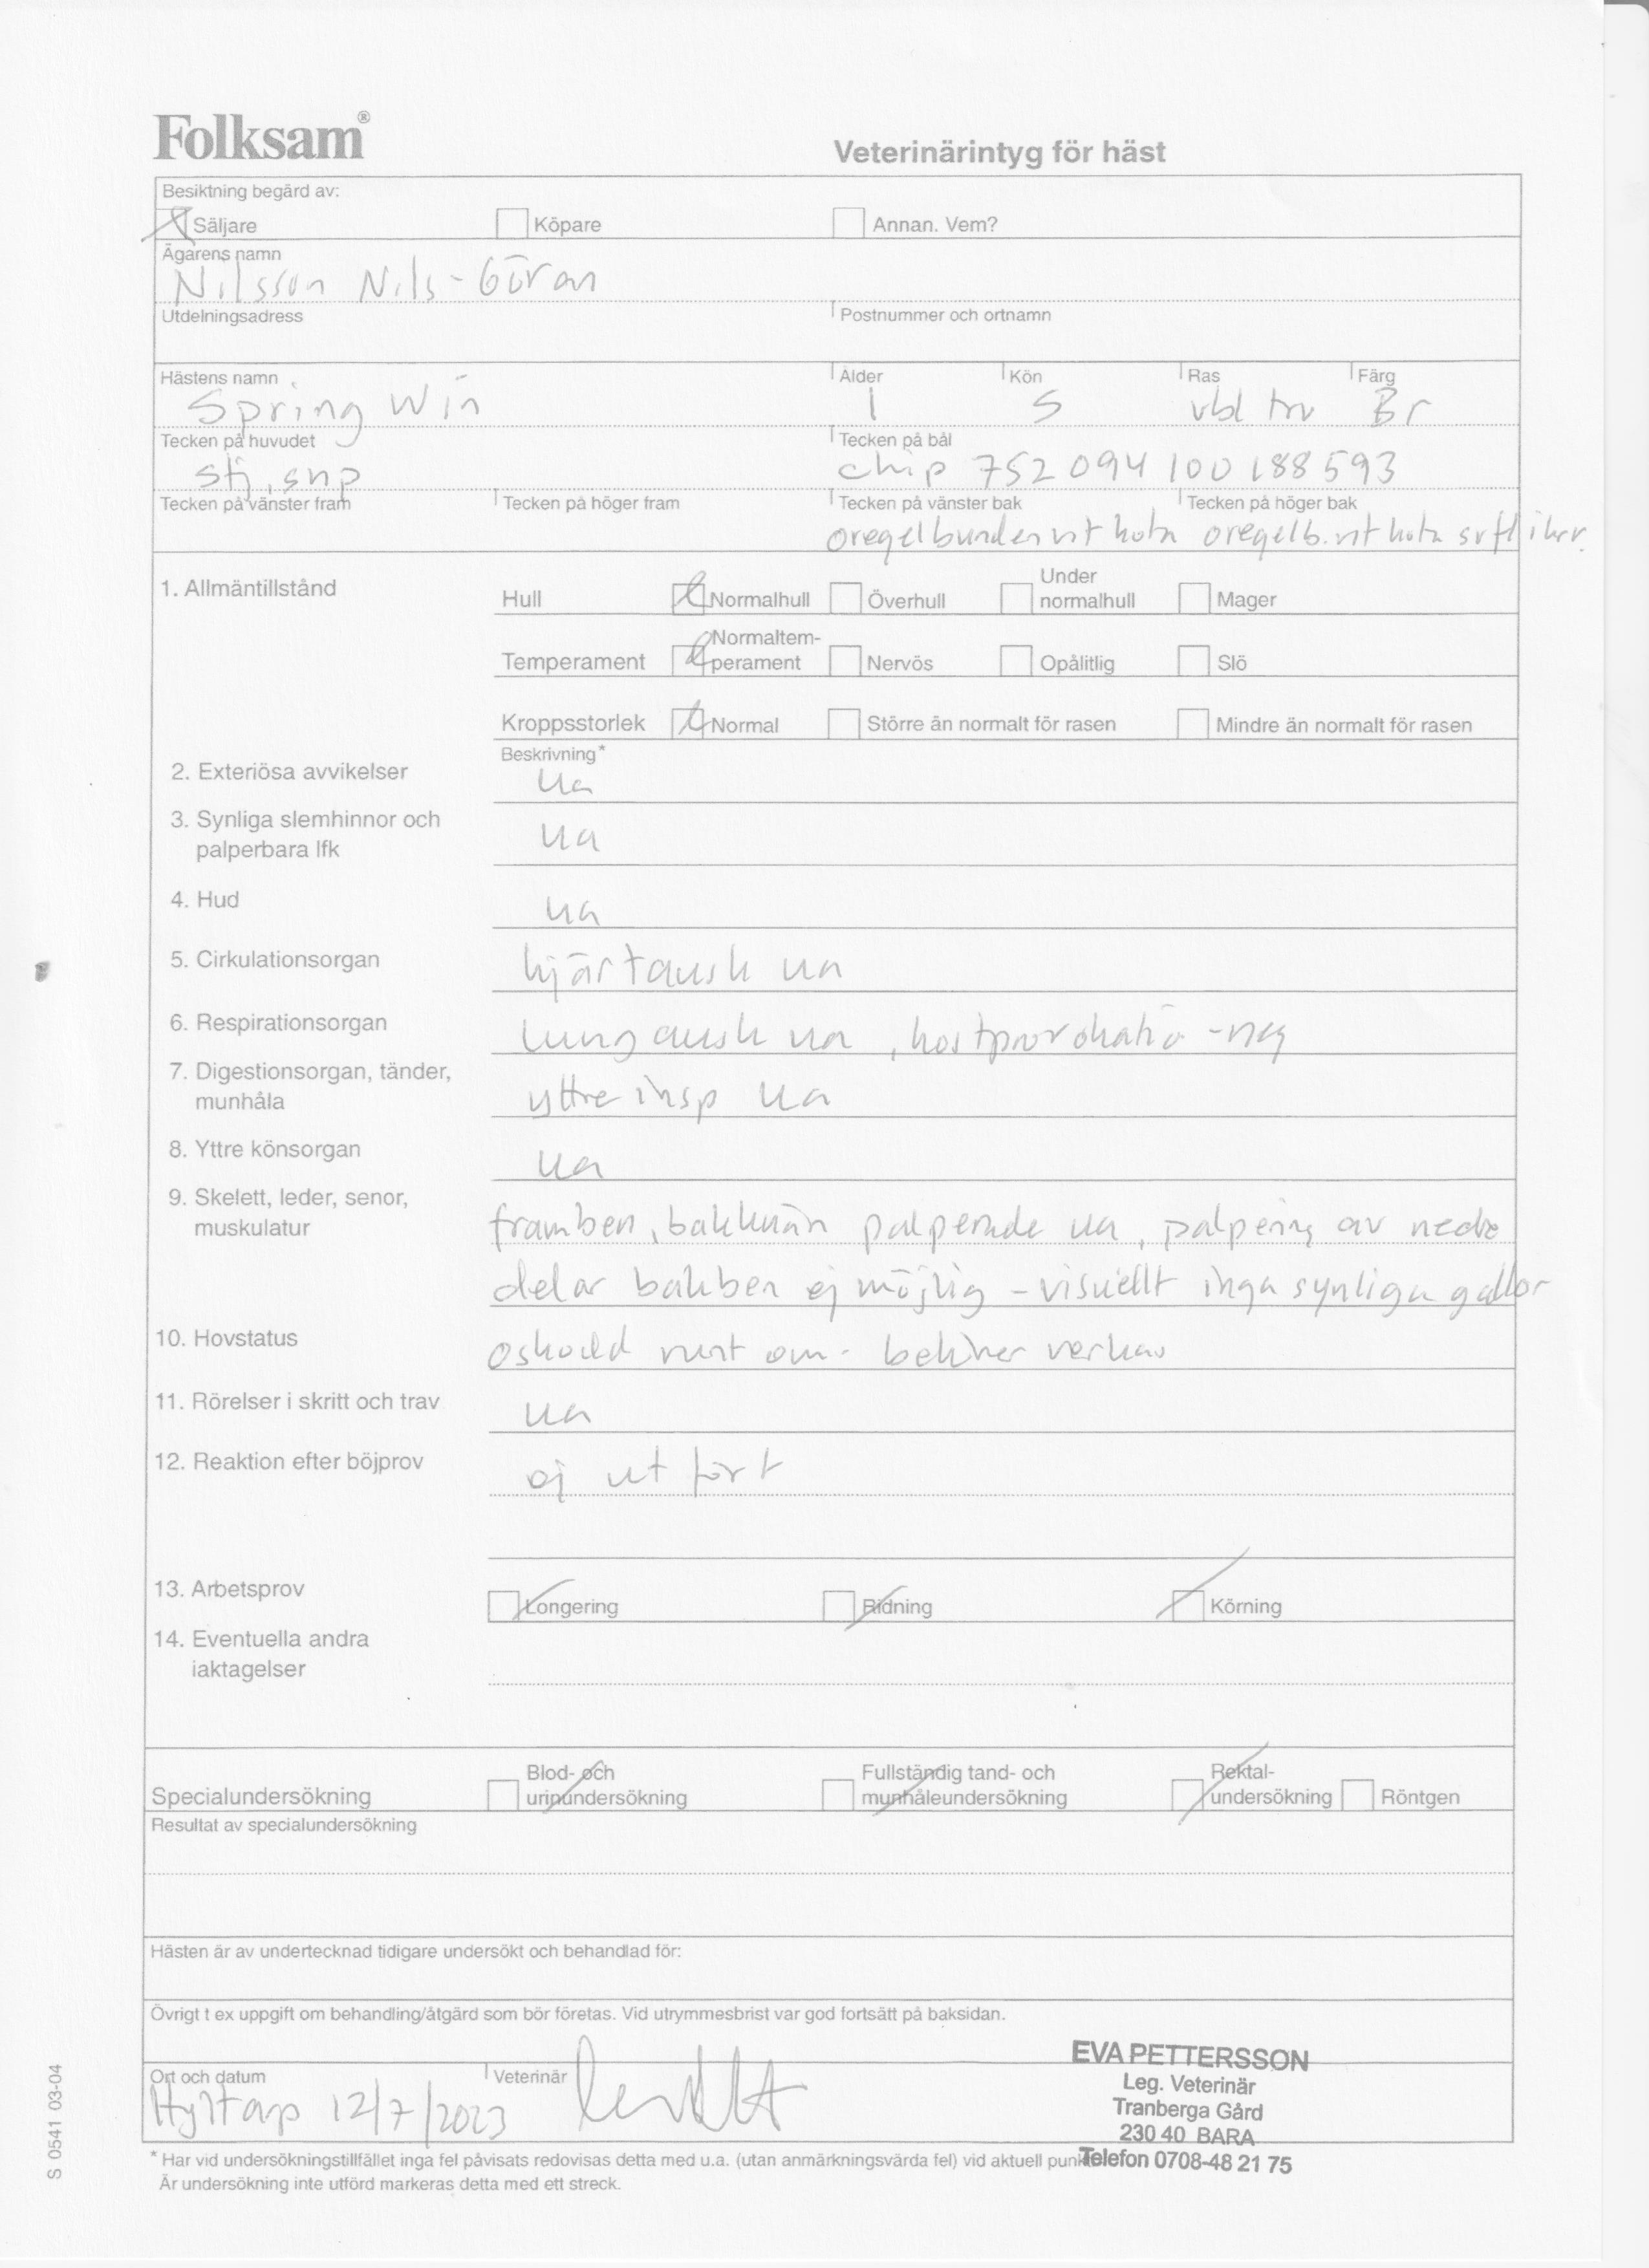 Folksam®
Veterinärintyg för häst
Besiktning begärd av:
Säljare Köpare Annan. Vem?
Ägarens namn
Nilsson Nils-Göran
Utdelningsadress Postnummer och ortnamn
Hästens namn Ålder Kön Ras Färg
Spring Win 1 S vbl trv Br
Tecken på huvudet Tecken på bål
stj, snp chip 752094100188593
Tecken på vänster fram Tecken på höger fram Tecken på vänster bak Tecken på höger bak
oregelbunden vit kota oregelb. vit kota
1. Allmäntillstånd
Hull Normalhull Överhull Under normalhull Mager
Temperament Normaltem-perament Nervös Opålitlig Slö
Kroppsstorlek Normal Större än normalt för rasen Mindre än normalt för rasen
Beskrivning*
2. Exteriösa avvikelser ua
3. Synliga slemhinnor och
palperbara lfk ua
4. Hud ua
5. Cirkulationsorgan hjärtausk ua
6. Respirationsorgan lungausk ua, hostprovokatio -neg
7. Digestionsorgan, tänder,
munhåla yttre insp ua
8. Yttre könsorgan ua
9. Skelett, leder, senor,
muskulatur framben, bakknän palperade ua, palpering av nedre
delar bakben ej möjlig - visuellt inga synliga gallor
10. Hovstatus oskodd runt om - behöver verkas
11. Rörelser i skritt och trav ua
12. Reaktion efter böjprov ej utfört
13. Arbetsprov Longering Ridning Körning
14. Eventuella andra
iaktagelser
Specialundersökning Blod- och urinundersökning Fullständig tand- och munhåleundersökning Rektal-undersökning Röntgen
Resultat av specialundersökning
Hästen är av undertecknad tidigare undersökt och behandlad för:
Övrigt t ex uppgift om behandling/åtgärd som bör företas. Vid utrymmesbrist var god fortsätt på baksidan.
Ort och datum Veterinär
12/7/2023
EVA PETTERSSON
Leg. Veterinär
Tranberga Gård
230 40 BARA
Telefon 0708-48 21 75
* Har vid undersökningstillfället inga fel påvisats redovisas detta med u.a. (utan anmärkningsvärda fel) vid aktuell
Är undersökning inte utförd markeras detta med ett streck.
S 0541 03-04